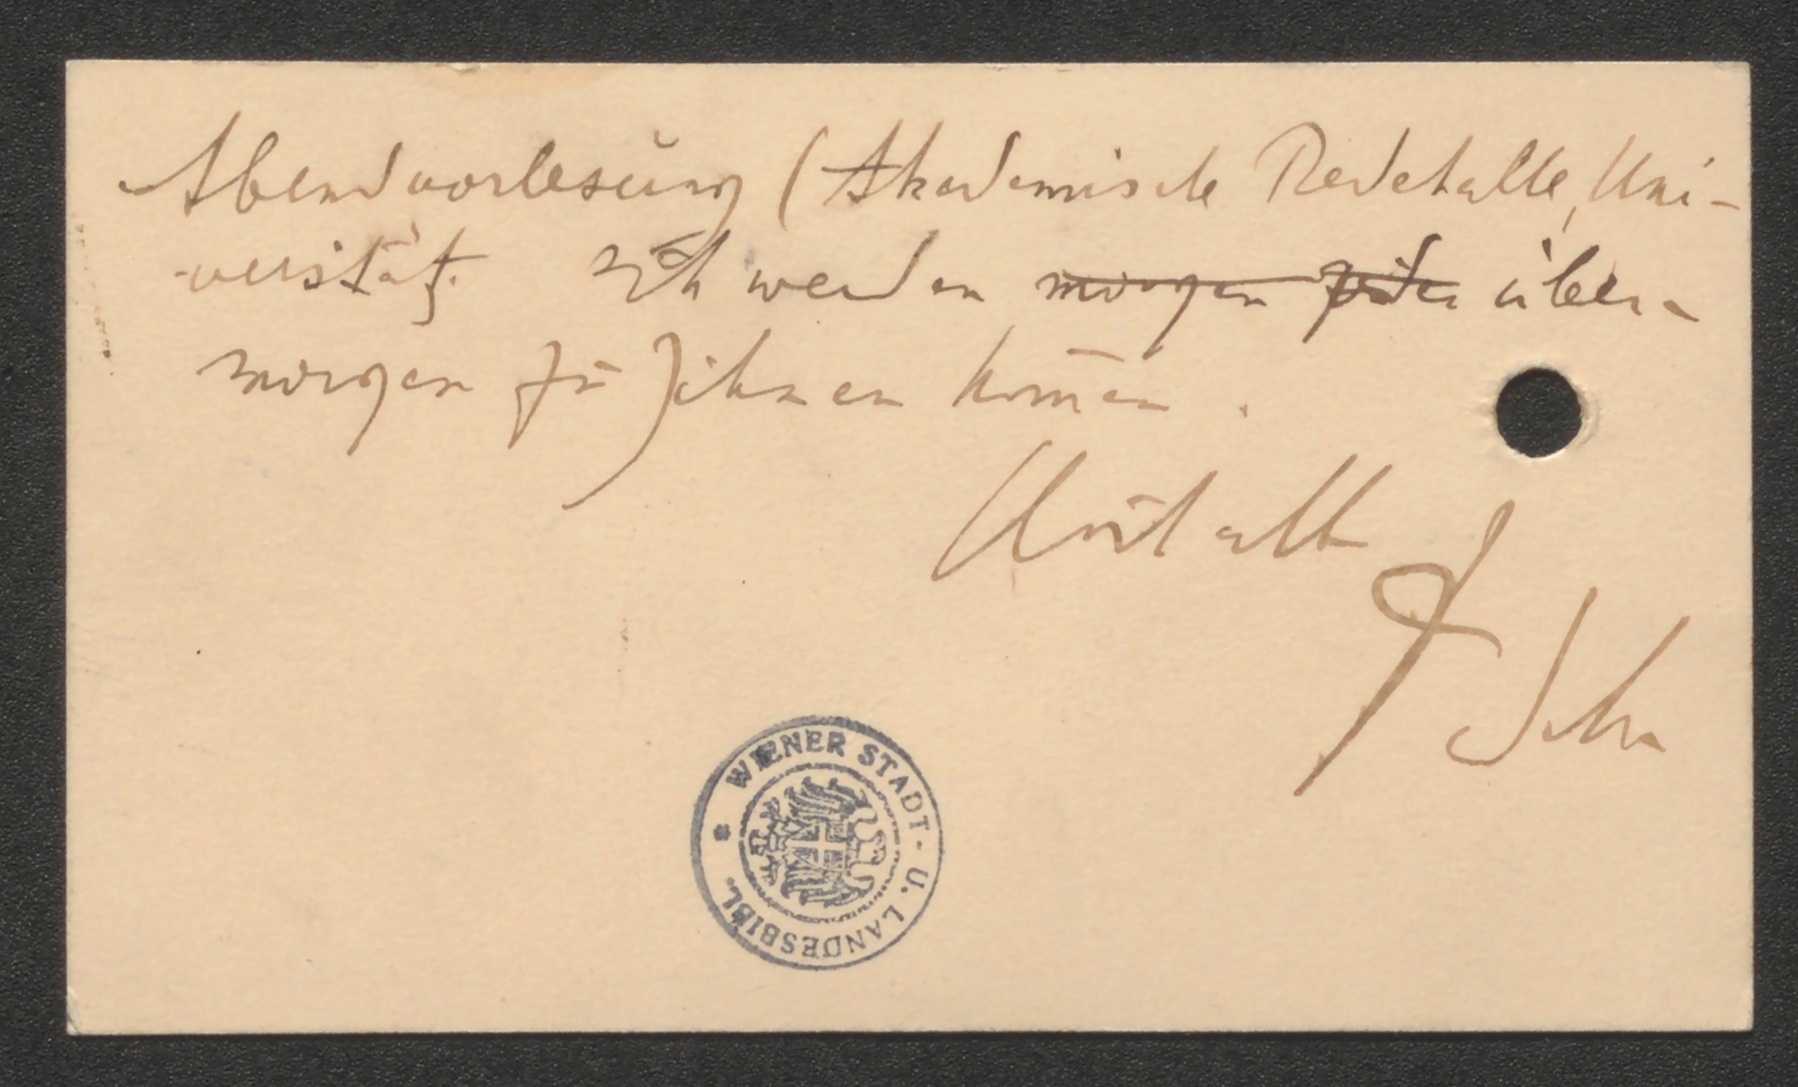 Abendvorlesung (Akademische Redehalle, Uni-
versität. Ich werden morgen über-
morgen zu Ihnen komen.
WIENER STADT- U. LANDESBIBL.